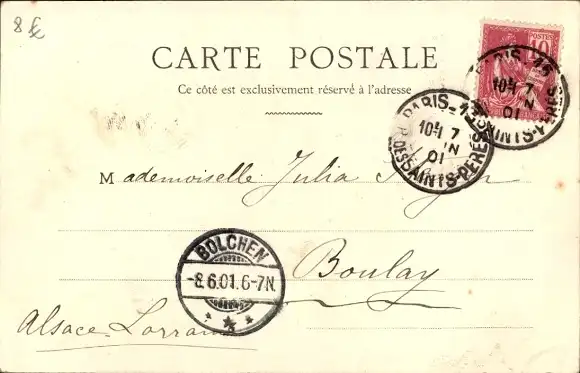 8
CARTE POSTALE
Ce côté est exclusivement réservé à l'adresse
POSTES
10
PARIS-15
10 7
01
SAINTS-PÈRES
PARIS-15
10 7
01
R. DES SAINTS-PÈRES
Mademoiselle Julia
BOLCHEN
-8.6.01.6-7N.
Boulay
Alsace-Lorraine